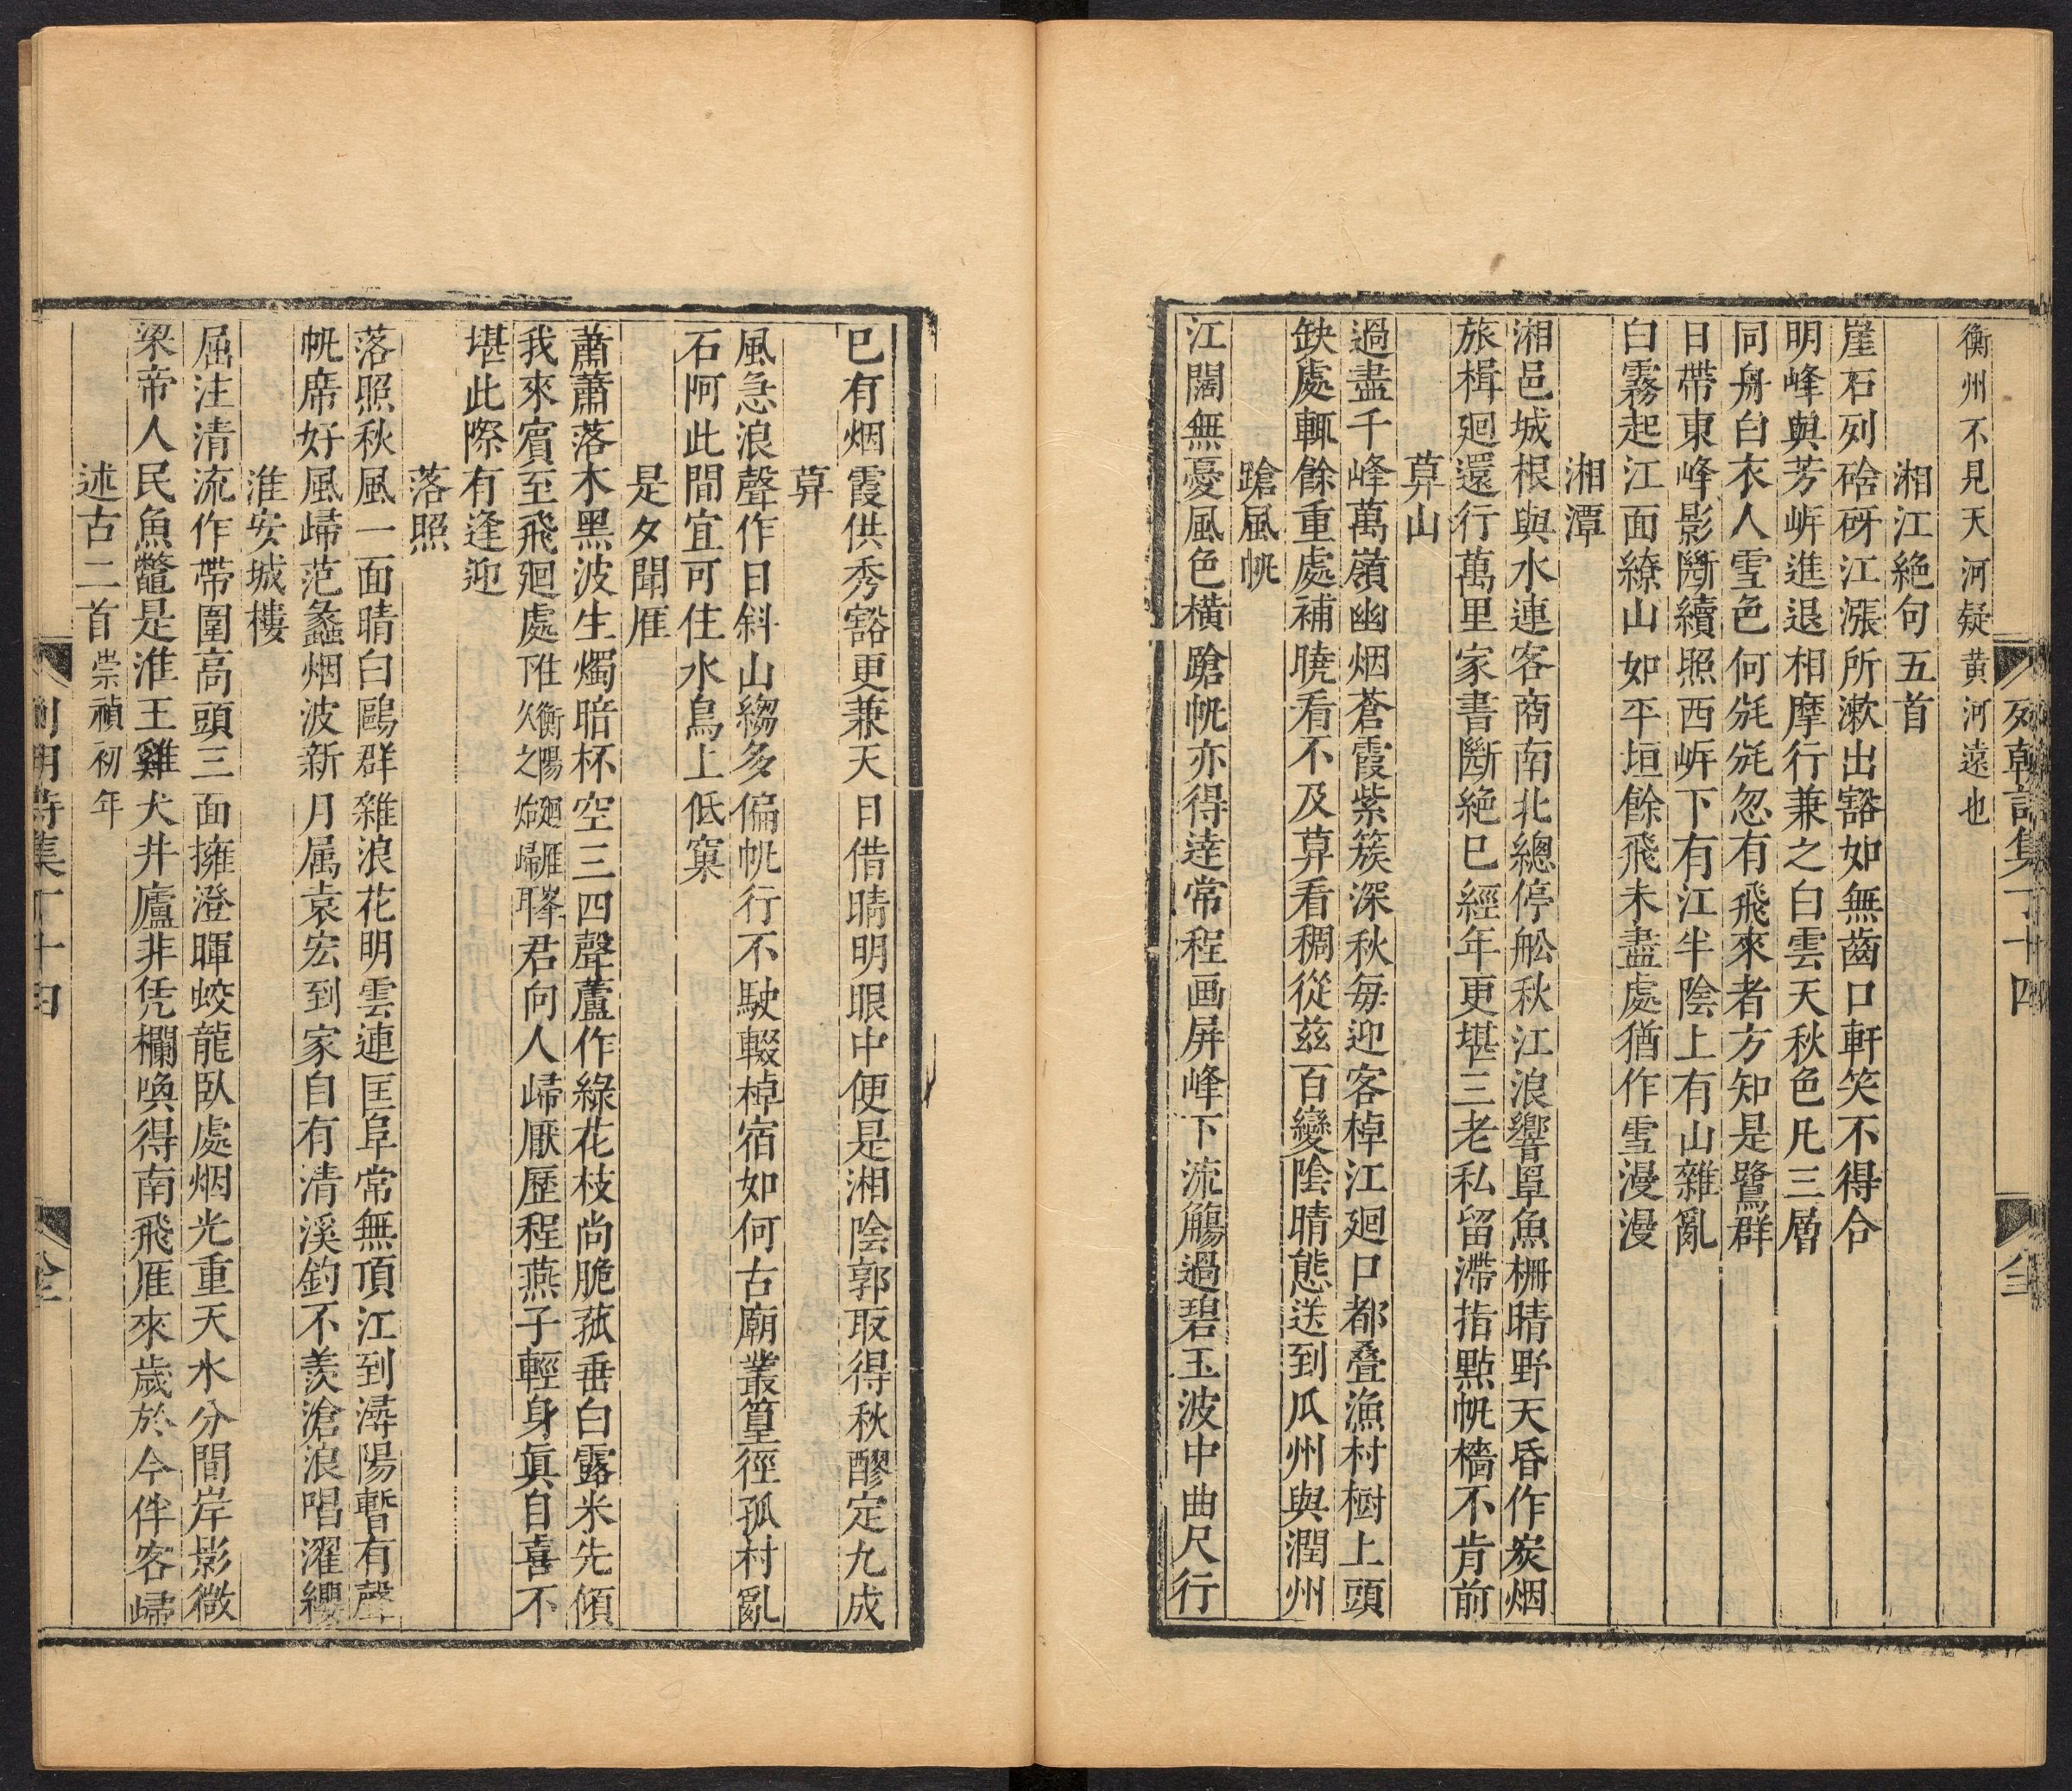 列朝詩集丁十四
衡州不見天河疑黃河遠也
湘江絕句五首
崖石列硌砑江漲所漱出豁如無齒口軒笑不得合
明峰與芳㟁進退相摩行兼之白雲天秋色凡三層
同舟白衣人雪色何毿毿忽有飛來者方知是鷺群
日帶東峰影斷續照西㟁下有江半陰上有山雜亂
白霧起江面繚山如平垣餘飛未盡處猶作雪漫漫
湘潭
湘邑城根與水連客商南北總停舩秋江浪響罩魚柵晴野天昏作炭烟
旅楫廻還行萬里家書斷絕已經年更堪三老私留滯指點帆檣不肯前
萛山
過盡千峰萬嶺幽烟蒼霞紫簇深秋每迎客棹江廻口都疊漁村樹上頭
缺處輒餘重處補曉看不及萛看稠從茲百變陰晴態送到瓜州與潤州
蹌風帆
江闊無憂風色橫蹌帆亦得達常程画屏峰下流觴過碧玉波中曲尺行
已有烟霞供秀豁更兼天日借晴明眼中便是湘陰郭取得秋醪定九成
萛
風急浪聲作日斜山縐多偏帆行不駛輟棹宿如何古廟叢篁徑孤村亂
石阿此間宜可住水鳥上低窠
是夕聞雁
蕭蕭落木黑波生燭暗杯空三四聲蘆作綠花枝尚脆菰垂白露米先傾
我來賓至飛廻處下隹衡陽廻雁峯久之始歸耳君向人歸厭歷程燕子輕身真自喜不
堪此際有逢迎
落照
落照秋風一面晴白鷗群雜浪花明雲連匡阜常無頂江到潯陽暫有聲
帆席好風歸范蠡烟波新月属袁宏到家自有清溪釣不羨滄浪唱濯纓
淮安城樓
屈注清流作帶圍高頭三面擁澄暉蛟龍臥處烟光重天水分間岸影微
梁帝人民魚鼈是淮王雞犬井廬非凭欄喚得南飛雁來歲於今伴客歸
述古二首崇禎初年